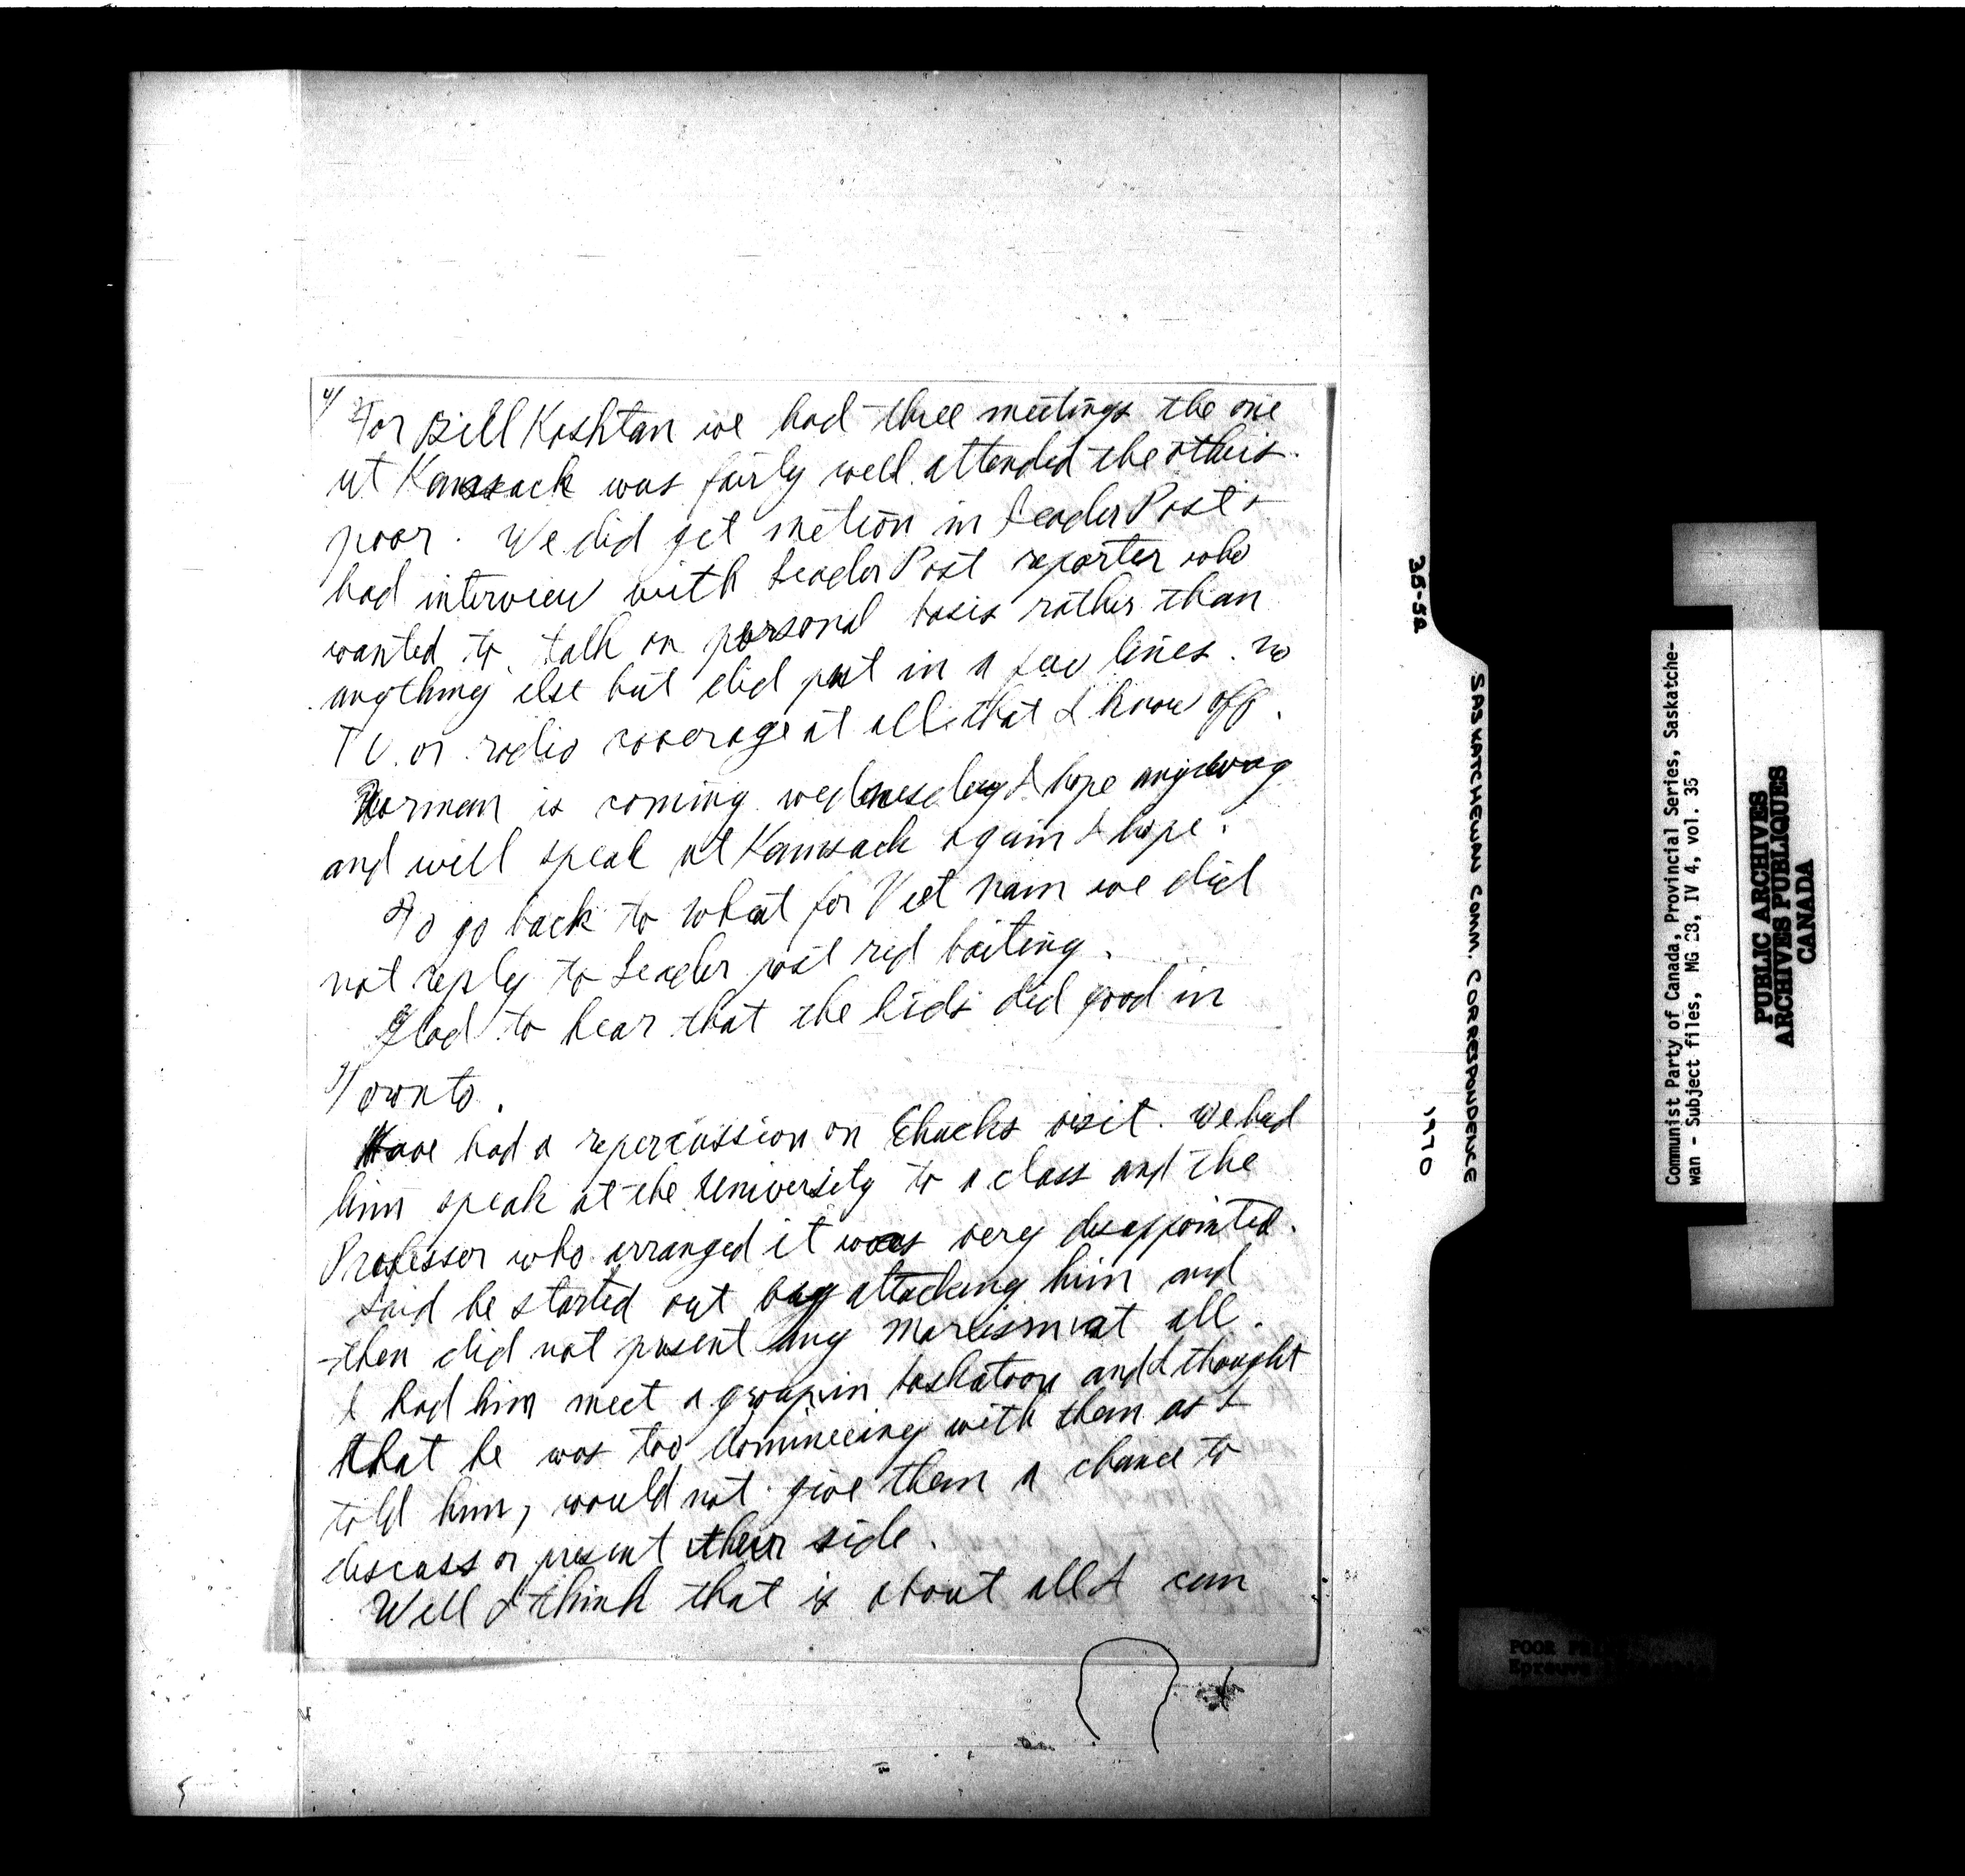 4/ For Bill Kashtan we had three meetings the one
at Kamsack was fairly well attended the others
poor. We did get metion in Leader Post +
had interview with Leader Post reporter who
wanted to talk on personal basis rather than
anything else but did put in a few lines. no
TV. or radio coverage at all that I know off.
Norman is coming wednesday I hope anyway
and will speak at Kamsack again I hope.
To go back to what for Viet nam we did
not reply to Leader post red baiting.
Glad to hear that the kids did good in
Toronto.
Have had a repercussion on Chucks visit. We had
him speak at the University to a class and the
Professer who arranged it was very disappointed.
Said he started out by attacking him and
then did not present any marxism at all.
I had him meet a group in Saskatoon and I thought
that he was too domineeing with them as I
told him, would not give them a chance to
discuss or present their side.
Well I think that is about all I can
35-52
SASKATCHEWAN COMM. CORRESPONDENCE
1970
Communist Party of Canada, Provincial Series, Saskatche-
wan - Subject files, MG 28, IV 4, vol. 35
PUBLIC ARCHIVES
ARCHIVES PUBLIQUES
CANADA
POOR
Epreuve